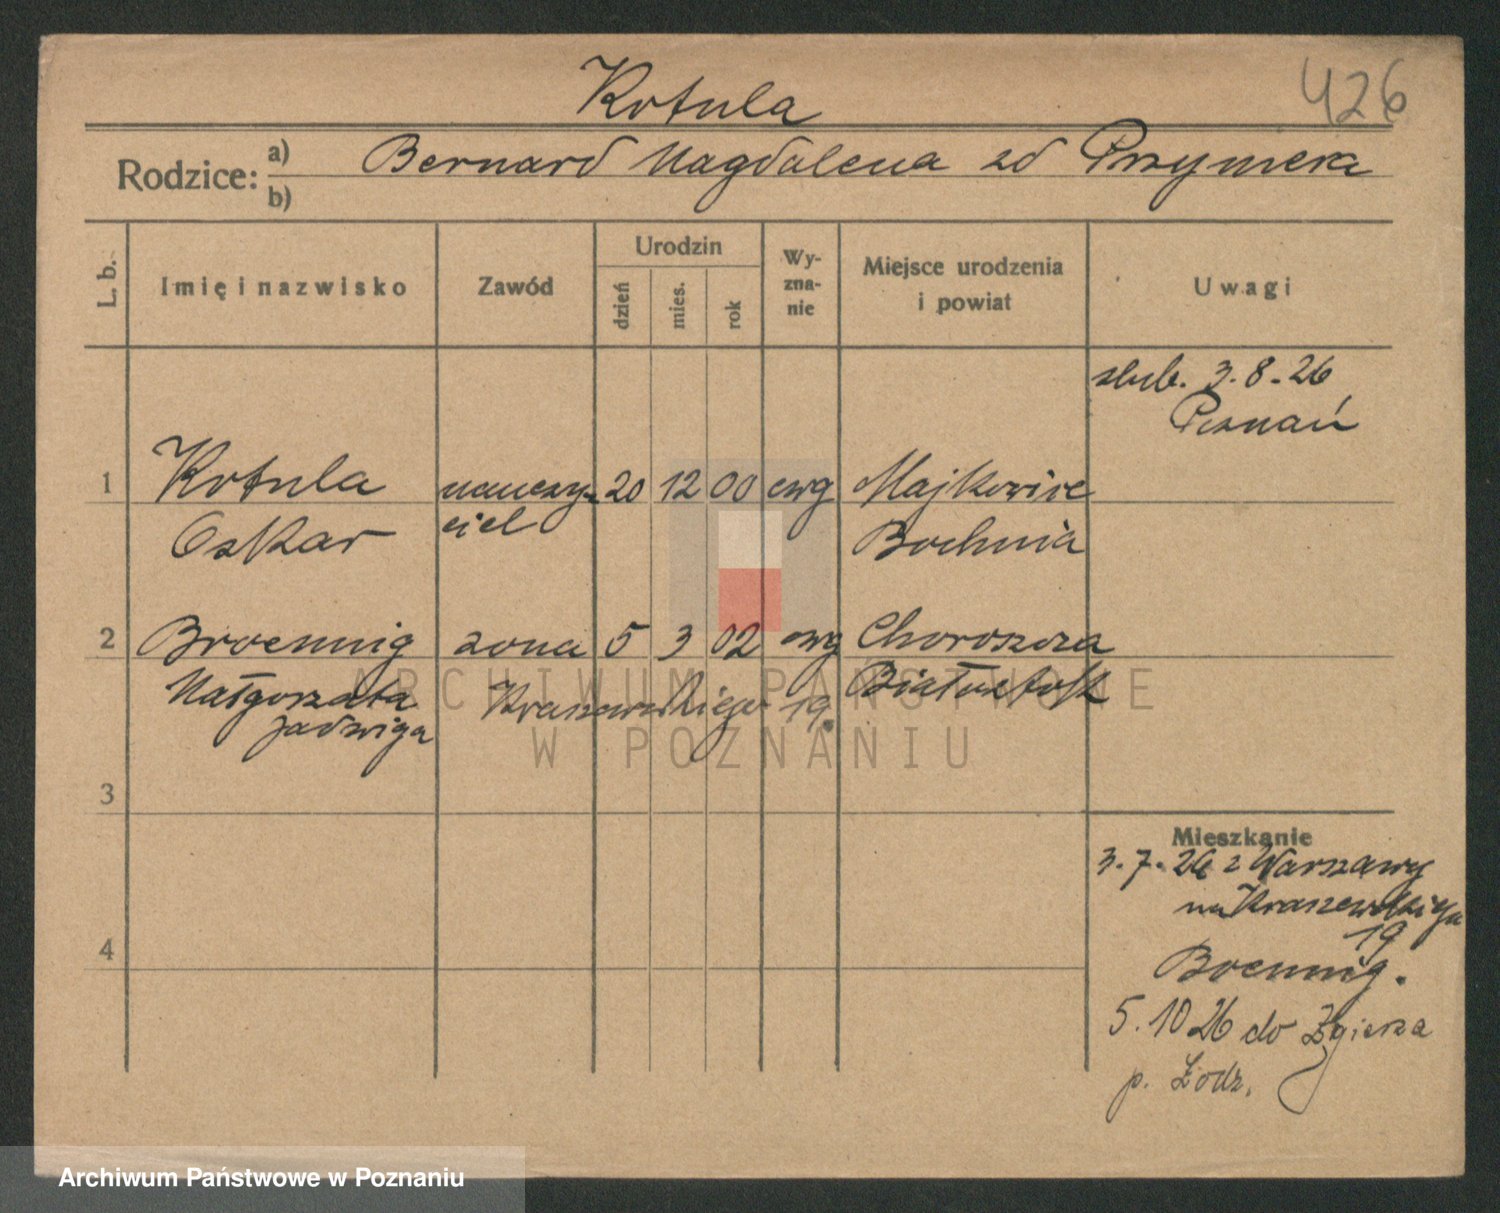 Kotula
426
Rodzice: a) Bernard Magdalena zd Przymera
b)
L. b.
Imię i nazwisko
Zawód
Urodzin
dzień
mies.
rok
Wy-
zna-
nie
Miejsce urodzenia
i powiat
Uwagi
ślub. 3.8.26
Poznań
1 Kotula nauczy- 20 12 00 ewg Majkowice
Oskar ciel Bochnia
2 Broennig żona 5 3 02 ewg Choroszcza
Małgorzata Kraszewskiego 19. Białystok
Jadwiga
3
4
Mieszkanie
3.7.26 z Warszawy
na Kraszewskiego
19
Broennig.
5.10 26 do Zgierza
p. Łódź.
ARCHIWUM PAŃSTWOWE
W POZNANIU
Archiwum Państwowe w Poznaniu